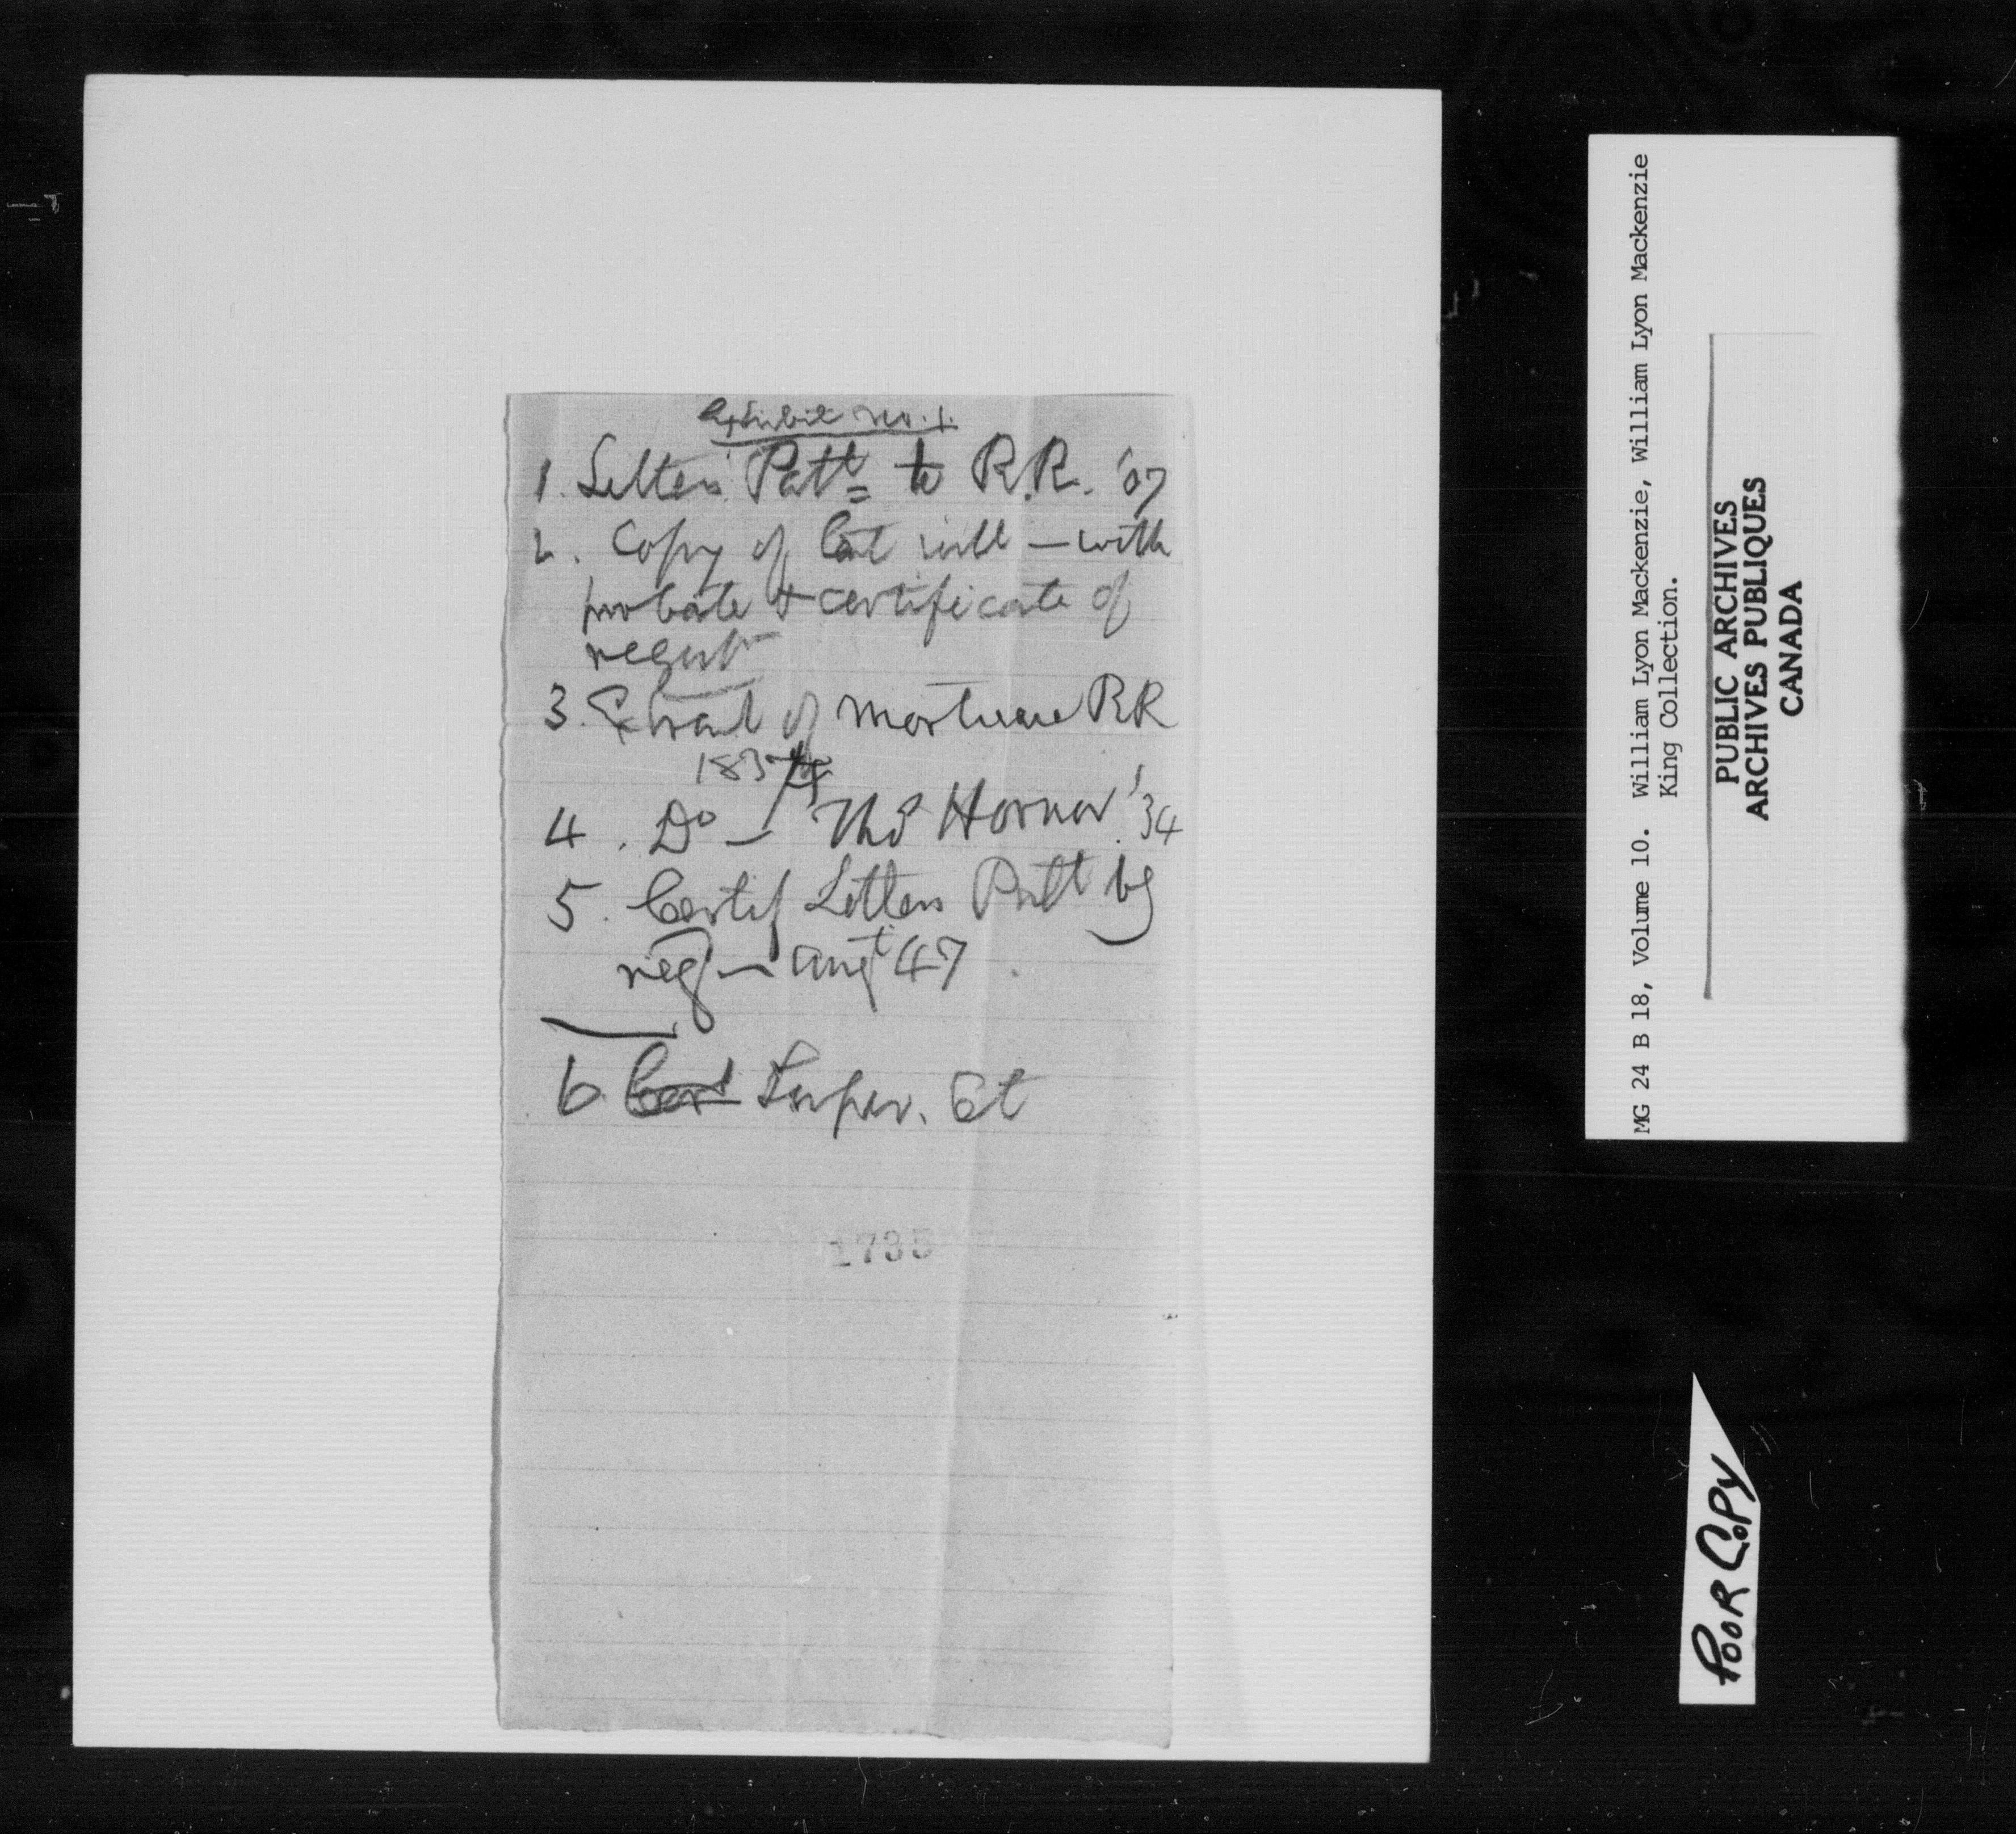 Exhibit No. 1.
1. Letters Patt to R.R. '07
2. Copy of last will — with
probate & certificate of
regist
3. Extract of mortuare RR
1834
4. Do — Thos Hornor '34
5. Certif Letters Patt by
reg — augt 47
6 Cert Super. Ct
1735
MG 24 B 18, Volume 10. William Lyon Mackenzie, William Lyon Mackenzie
King Collection.
PUBLIC ARCHIVES
ARCHIVES PUBLIQUES
CANADA
POOR COPY